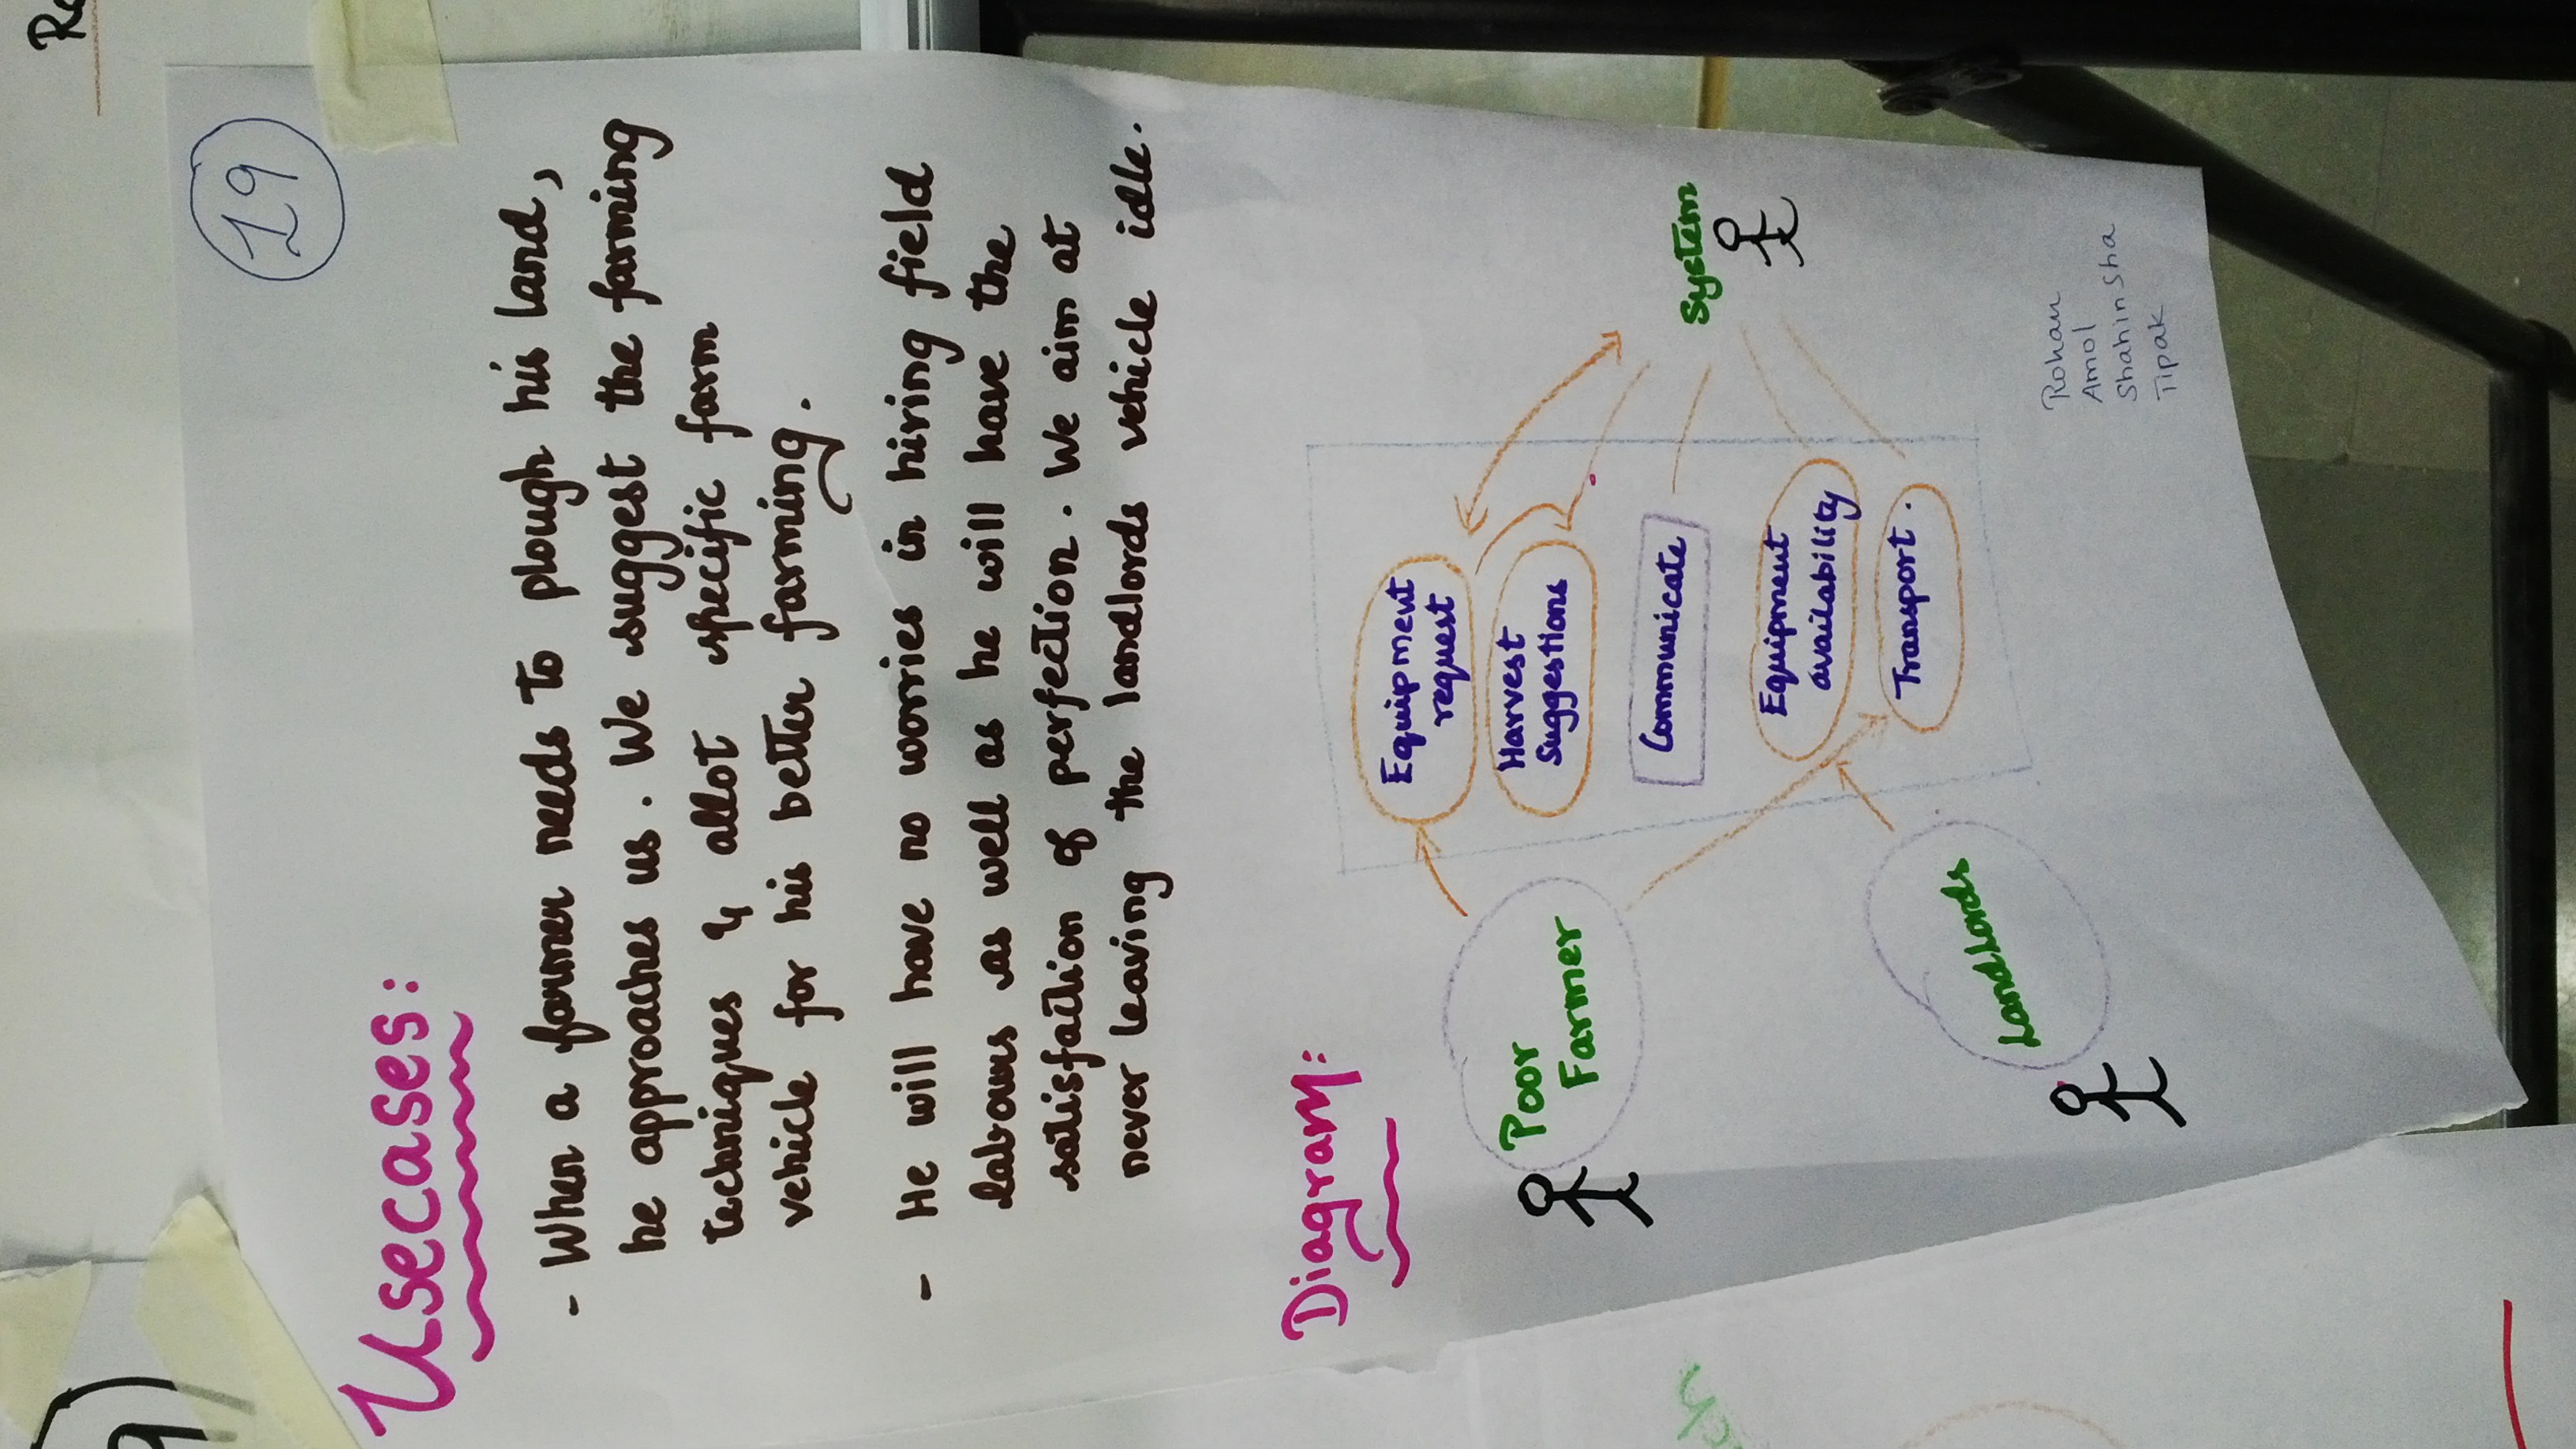 19
Usecases:
- When a farmer needs to plough his land,
he approaches us. We suggest the farming
techniques & allot specific farm
vehicle for his better farming.
- He will have no worries in hiring field
labours as well as he will have the
satisfaction of perfection. We aim at
never leaving the landlords vehicle idle.
Diagram:
Equipment
request
Poor
Farmer
Harvest
Suggestions
Communicate
System
Equipment
availability
Transport.
LandLords
Rohan
Amol
Shahinsha
Tipak